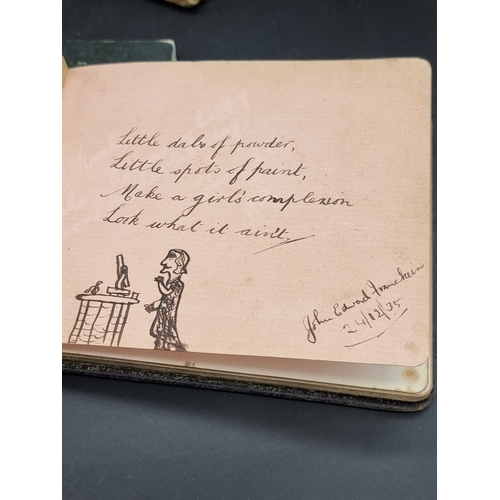 Little dabs of powder,
Little spots of paint,
Make a girl's complexion
Look what it ain't.
John Edward
24/12/35